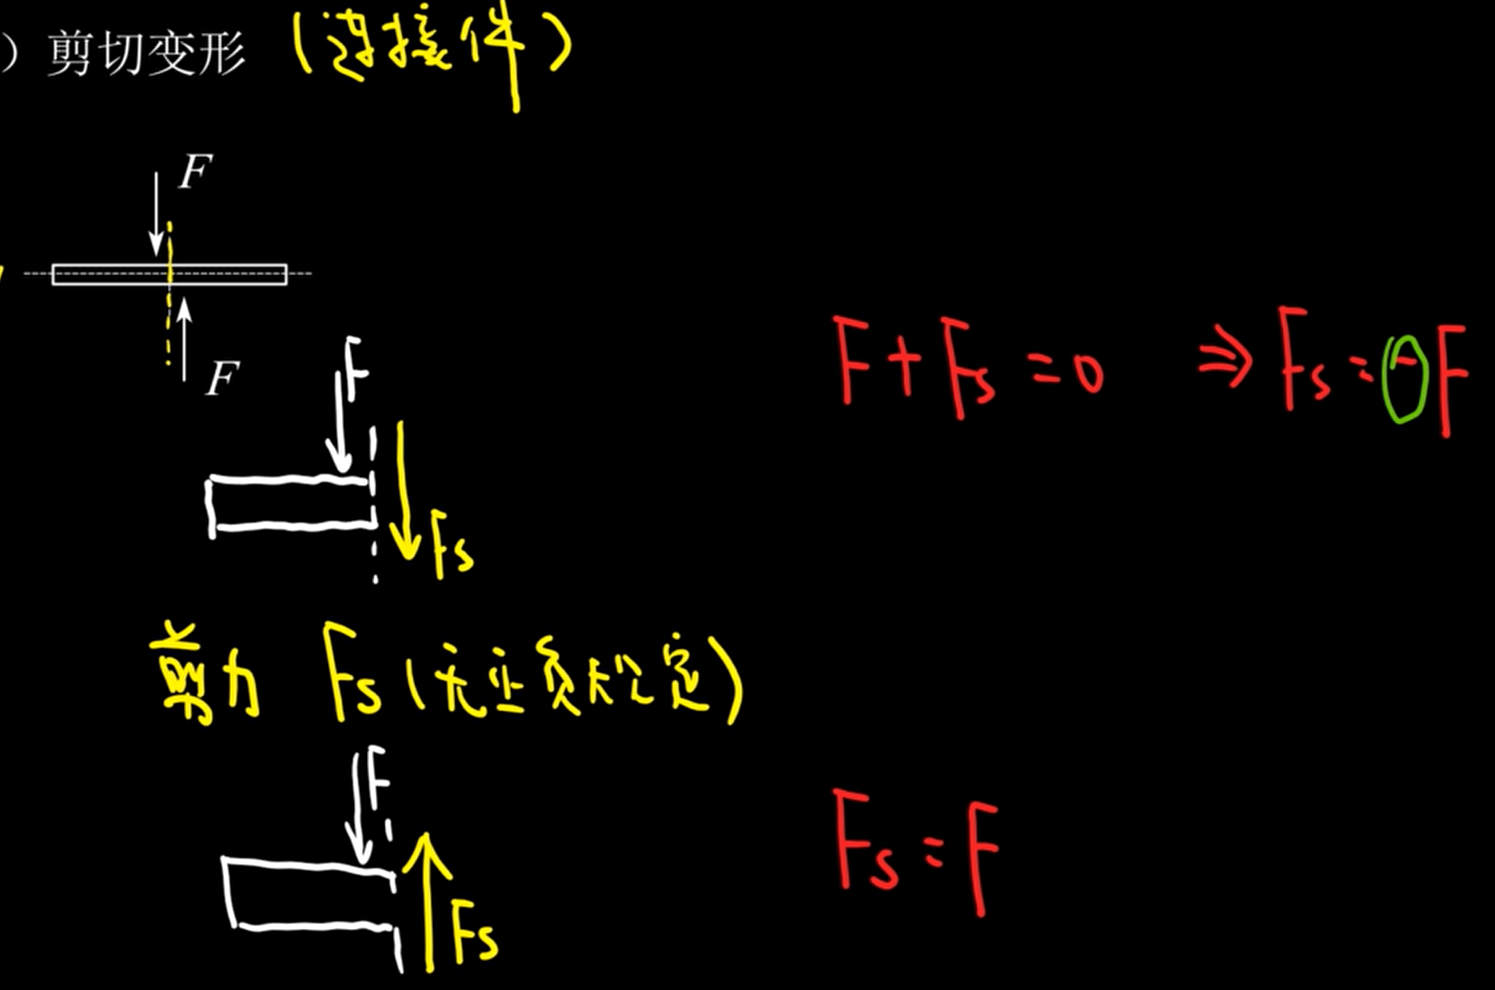 ）剪切变形 （连接件）
F
F
F
F+Fs=0 ⇒ Fs=-F
Fs
剪力 Fs（无正负规定）
F
Fs=F
Fs